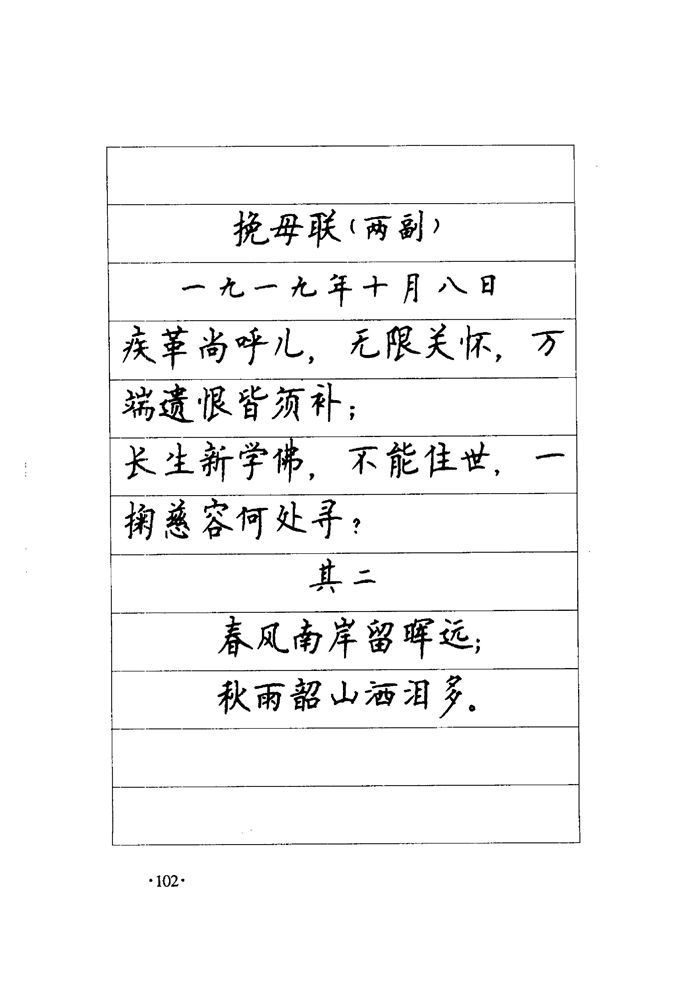 挽母联（两副）
一九一九年十月八日
疾革尚呼儿，无限关怀，万
端遗恨皆须补；
长生新学佛，不能住世，一
掬慈容何处寻？
其二
春风南岸留晖远；
秋雨韶山洒泪多。
·102·